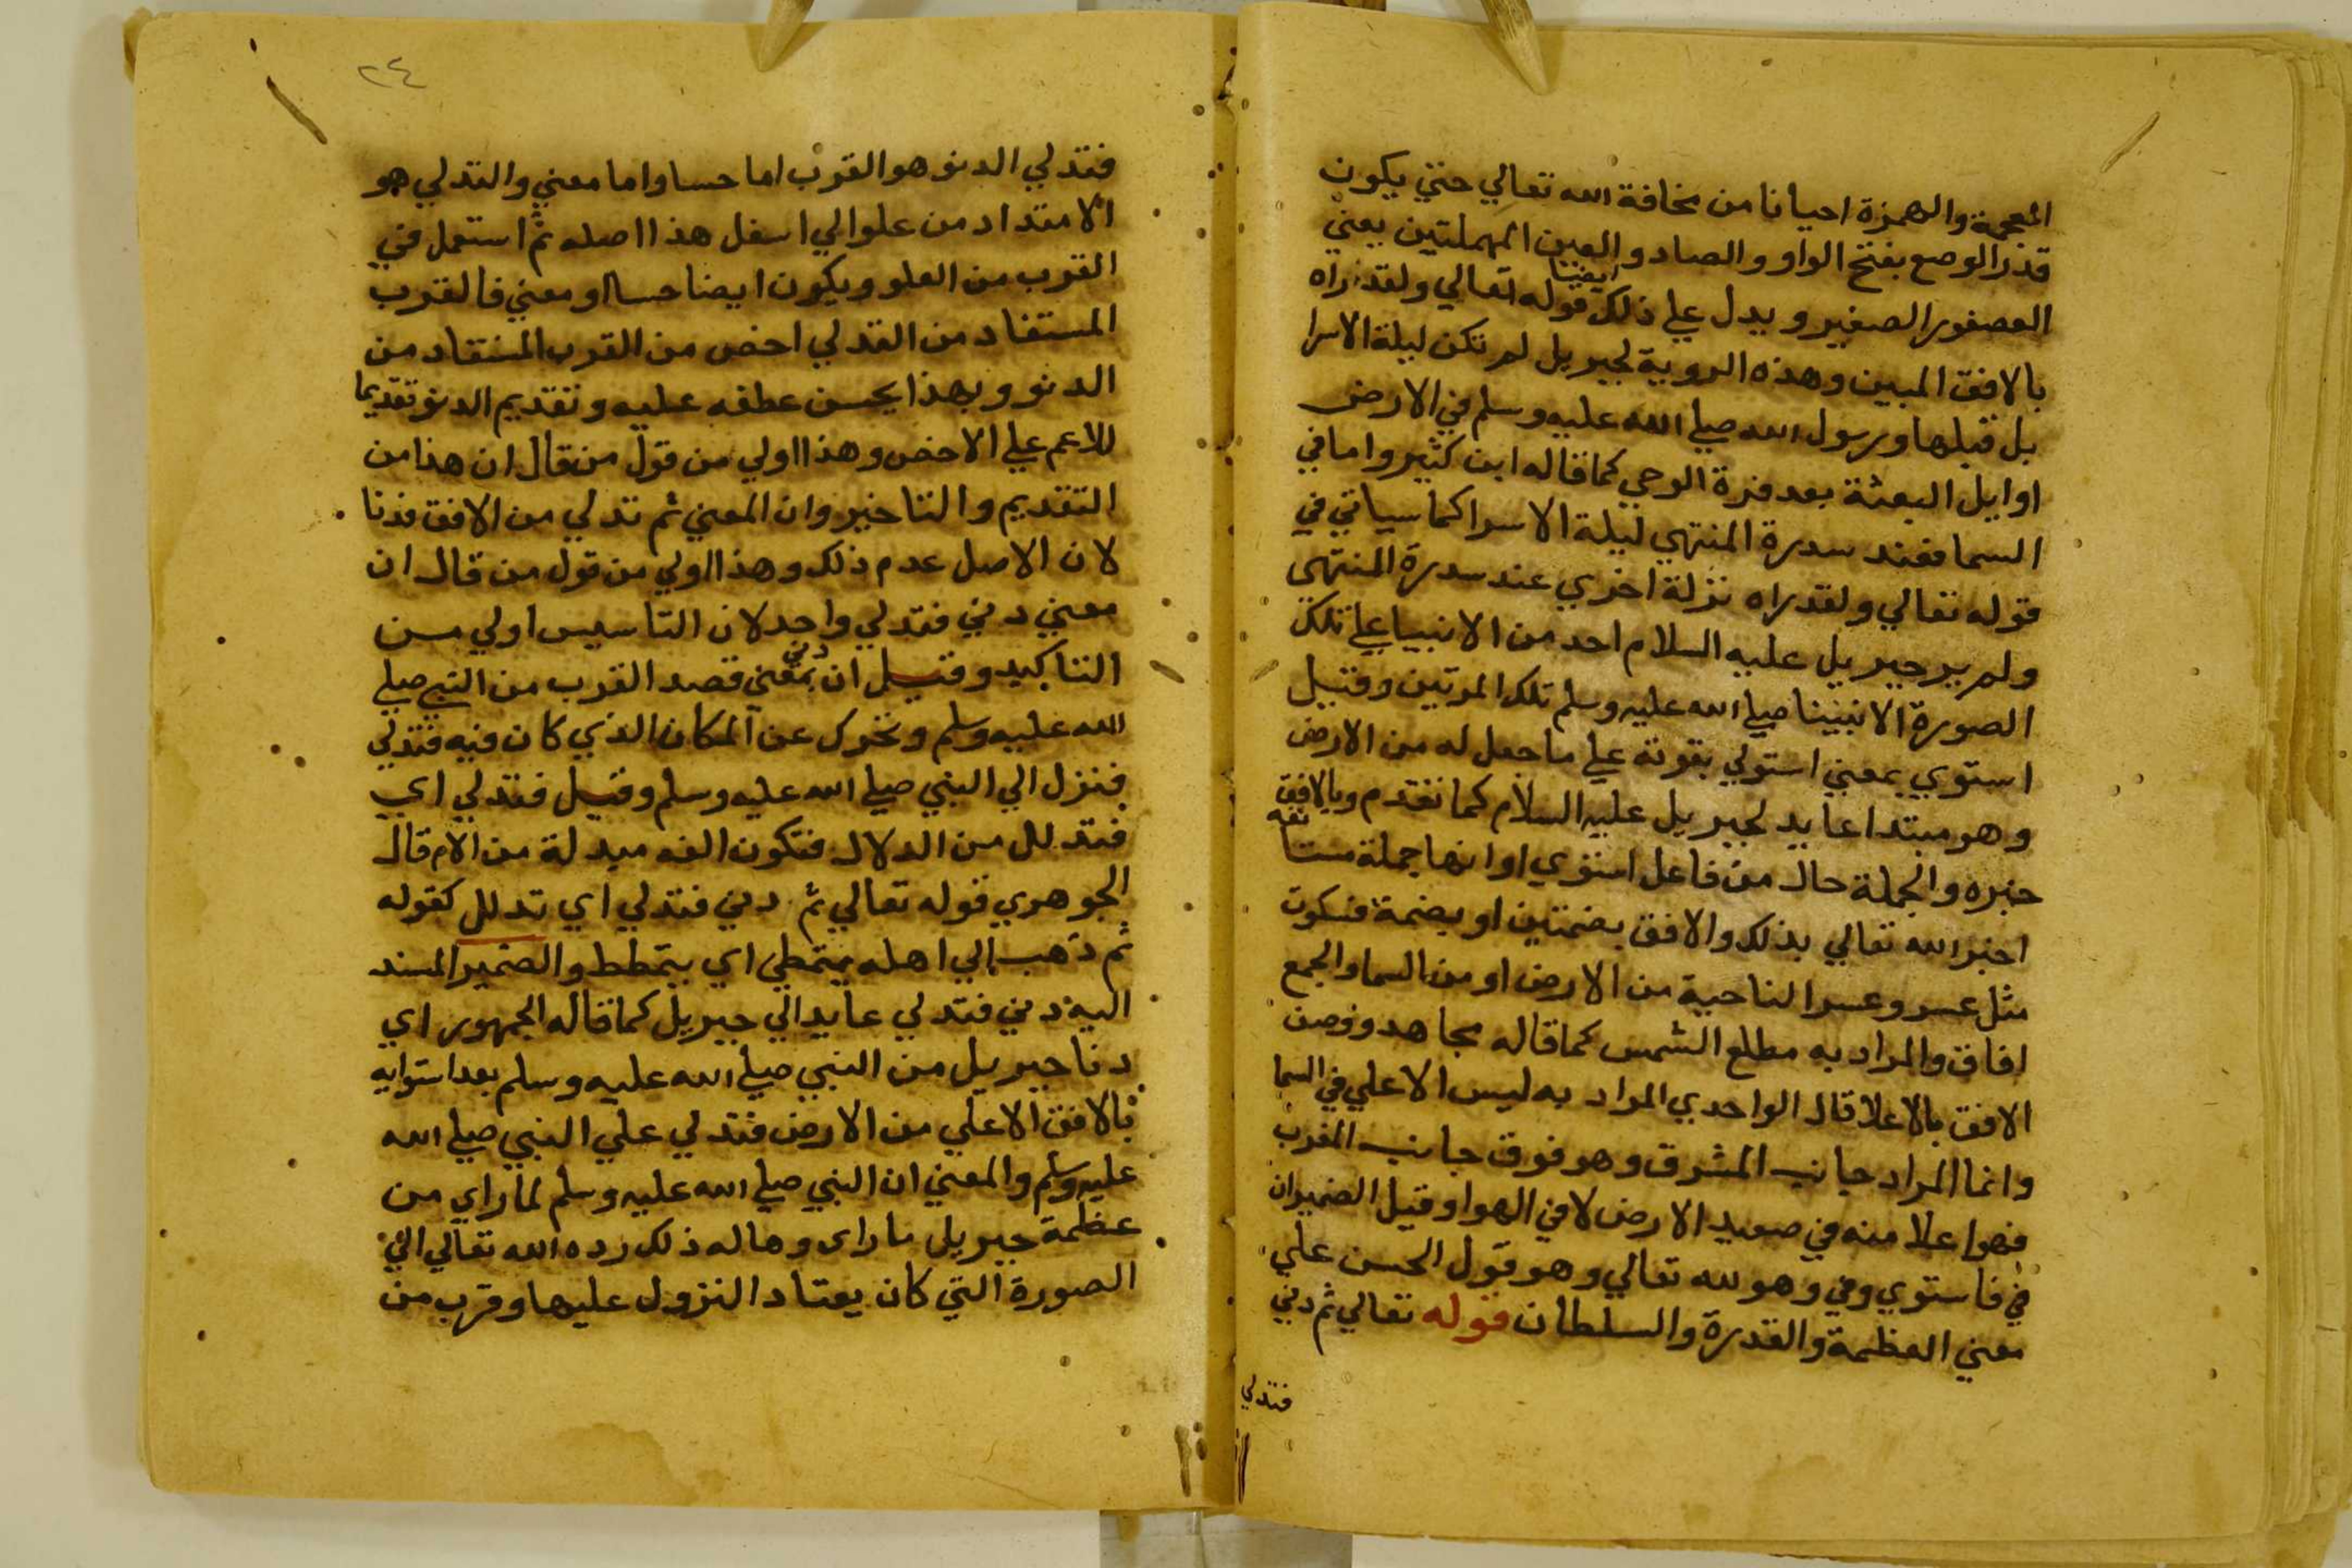 المعجمة والهمزة احيانا من مخافة الله تعالي حتي يكون
قدر الوصع بفتح الواو والصاد والعين المهملتين يعني
العصفور الصغير ويدل علي ذلك ايضا قوله تعالي ولقد راه
بالافق المبين وهذه الروية لجبريل لم تكن ليلة الاسرا
بل قبلها ورسول الله صلي الله عليه وسلم في الارض
اوايل البعثة بعد فترة الوحي كما قاله ابن كثير واما في
السما فعند سدرة المنتهي ليلة الاسرا كما سياتي في
قوله تعالي ولقد راه نزلة اخري عند سدرة المنتهي
ولم ير جبريل عليه السلام احد من الانبيا علي تلك
الصورة الا نبينا صلي الله عليه وسلم تلك المرتين وقيل
استوي بمعني استولي بقوته علي ما جعل له من الارض
وهو مبتدا عايد لجبريل عليه السلام كما تقدم وبالافق
خبره والجملة حال من فاعل استوي او انها جملة مستانفه
اخبر الله تعالي بذلك والافق بضمتين او بضمة فسكون
مثل عسر وعسر الناحية من الارض او من السما والجمع
افاق والمراد به مطلع الشمس كما قاله مجاهد ووصف
الافق بالاعلا قال الواحدي المراد به ليس الاعلي في السما
وانما المراد جانب المشرق وهو فوق جانب المغرب
فهو اعلا منه في صعيد الارض لا في الهوا وقيل الضميران
في فاستوي وفي وهو لله تعالي وهو قول الحسن علي
معني العظمة والقدرة والسلطان قوله تعالي ثم دني
فتدلي
٢٤
فتدلي الدنو هو القرب اما حسا واما معني والتدلي هو
الامتداد من علو الي اسفل هذا اصله ثم استعمل في
القرب من العلو ويكون ايضا حسا او معني فالقرب
المستفاد من التدلي اخص من القرب المستفاد من
الدنو وبهذا يحسن عطفه عليه وتقديم الدنو تقديما
للاعم علي الاخص وهذا اولي من قول من قال ان هذا من
التقديم والتاخير وان المعني ثم تدلي من الافق فدنا
لان الاصل عدم ذلك وهذا اولي من قول من قال ان
معني دني فتدلي واحد لان التاسيس اولي من
التاكيد وقيل ان دني بمعني قصد القرب من النبي صلي
الله عليه وسلم وتحرك عن المكان الذي كان فيه فتدلي
فنزل الي النبي صلي الله عليه وسلم وقيل فتدلي اي
فتدلل من الدلال فتكون الفه مبدلة من الام قال
الجوهري قوله تعالي ثم دني فتدلي اي تدلل كقوله
ثم ذهب الي اهله يتمطي اي يتمطط والضمير المسند
اليه دني فتدلي عايد الي جبريل كما قاله الجمهور اي
دنا جبريل من النبي صلي الله عليه وسلم بعد استوايه
بالافق الاعلي من الارض فتدلي علي النبي صلي الله
عليه وسلم والمعني ان النبي صلي الله عليه وسلم لما راي من
عظمة جبريل ما راي وهاله ذلك رده الله تعالي الي
الصورة التي كان يعتاد النزول عليها وقرب من